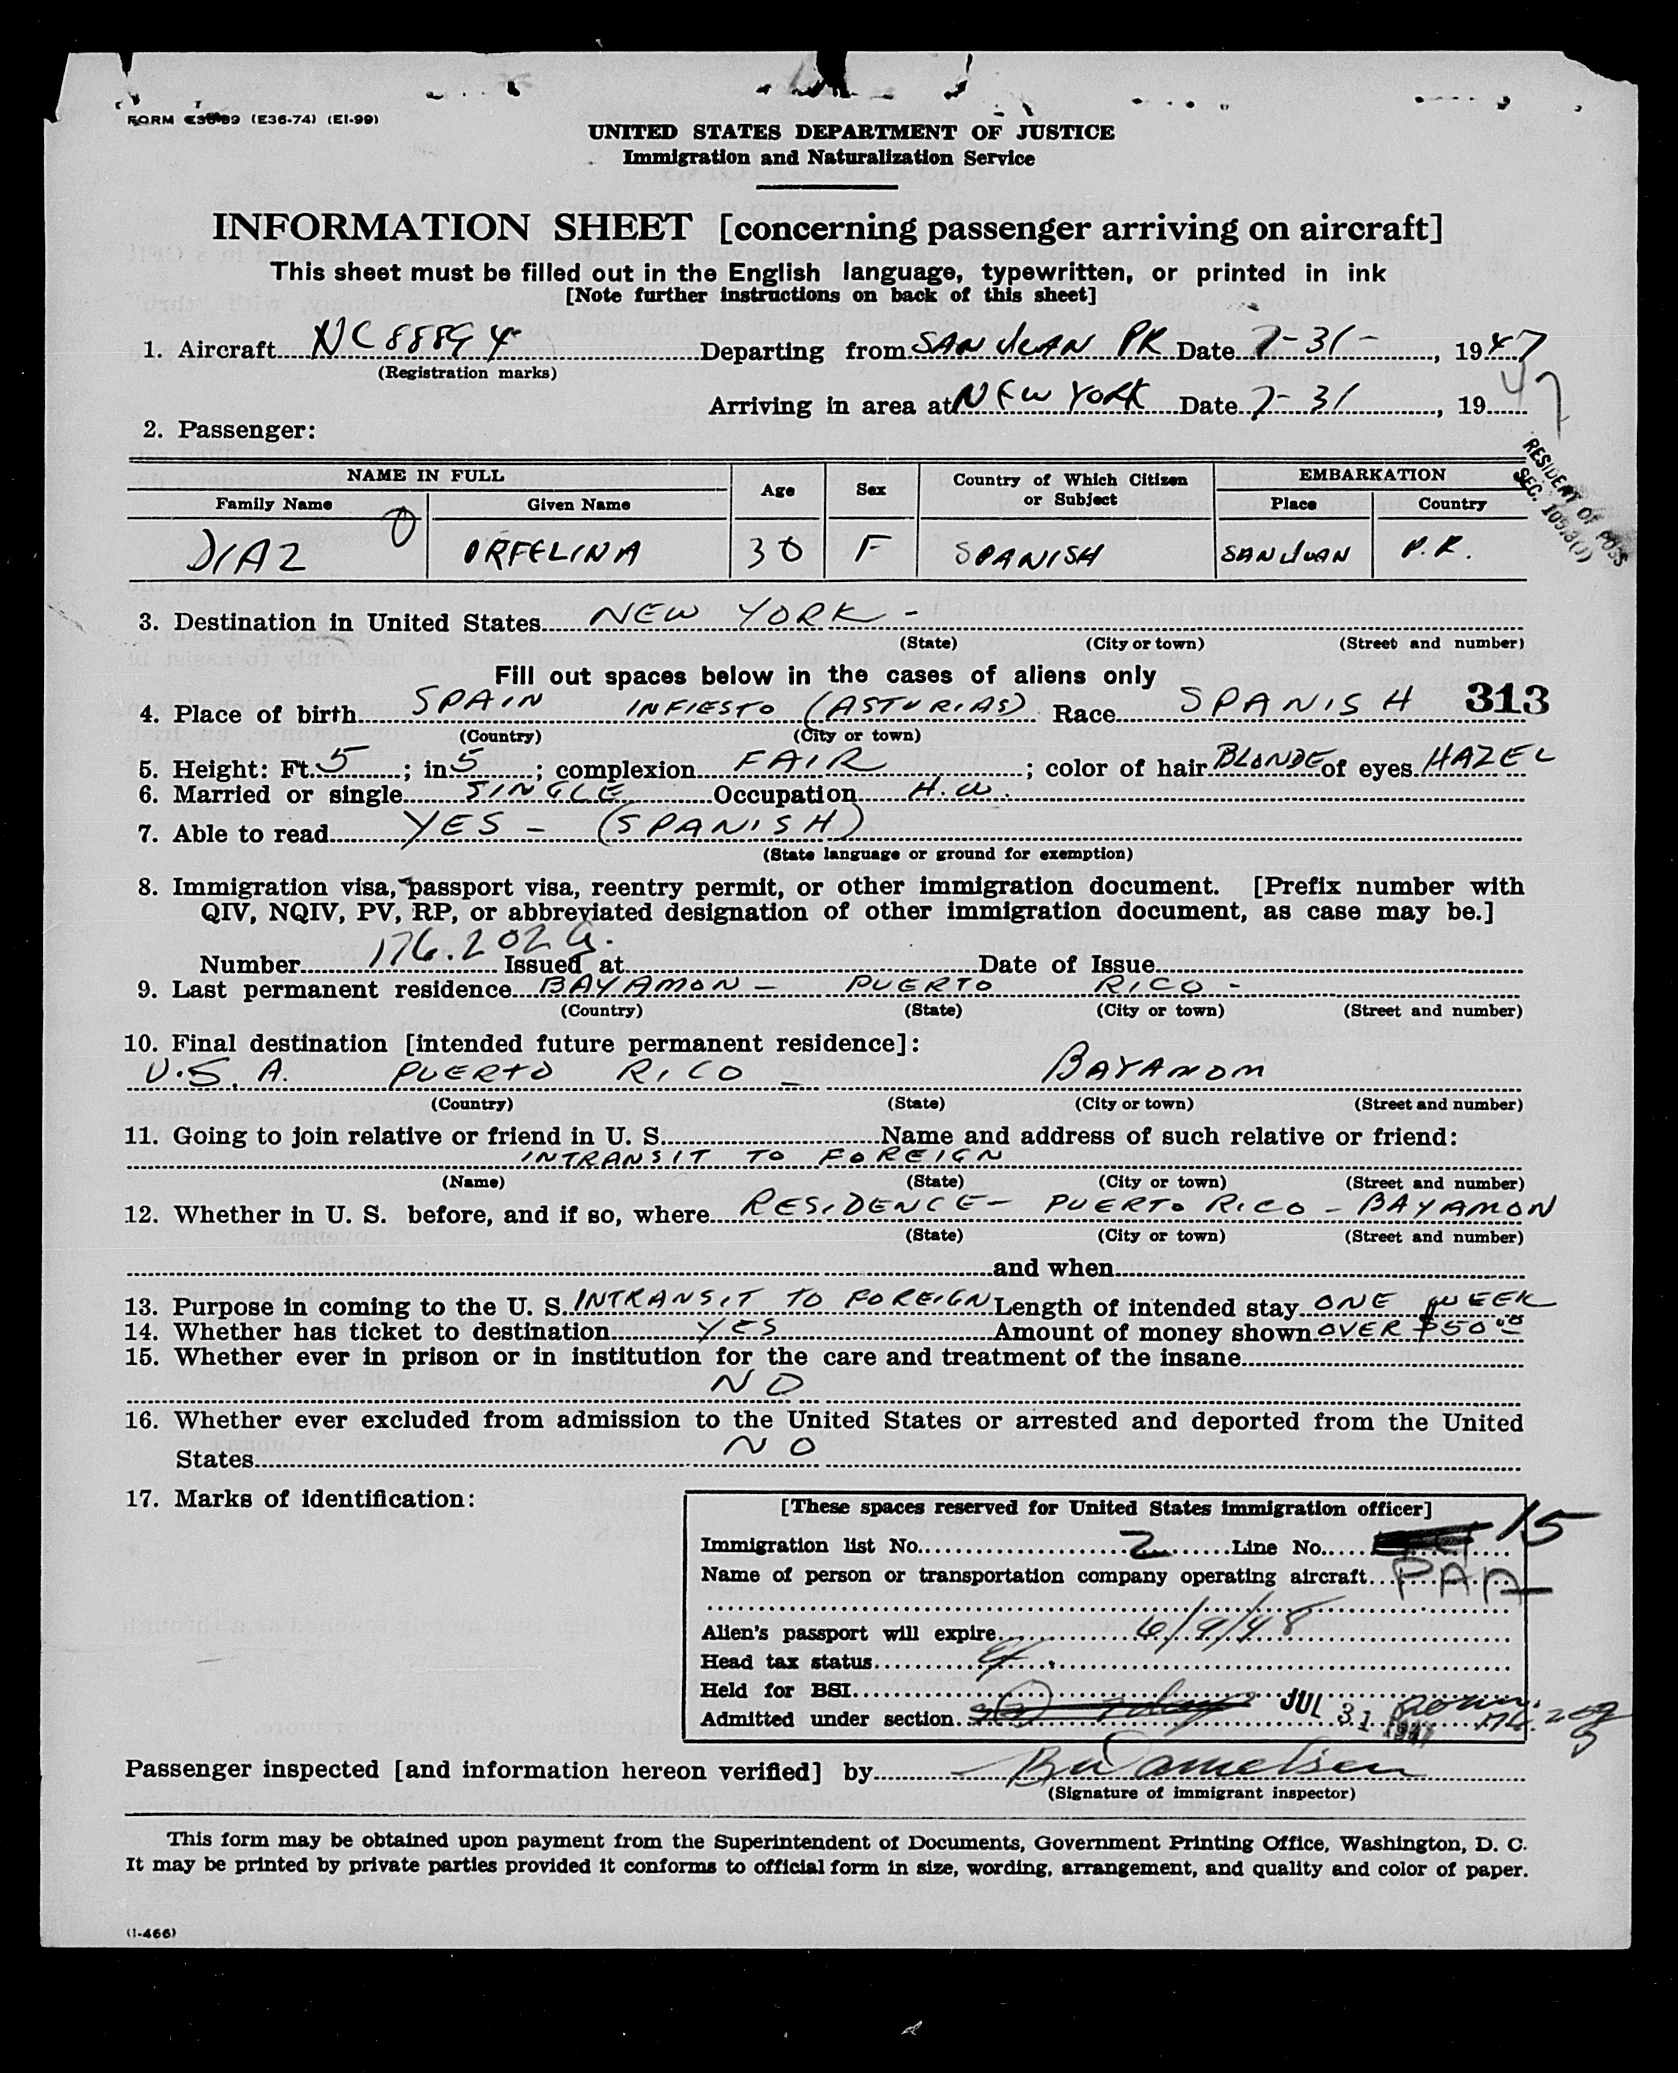 FORM (E36-74) (EI-99)
UNITED STATES DEPARTMENT OF JUSTICE
Immigration and Naturalization Service
INFORMATION SHEET [concerning passenger arriving on aircraft]
This sheet must be filled out in the English language, typewritten, or printed in ink
[Note further instructions on back of this sheet]
1. Aircraft NC88894 Departing from SAN JUAN PR Date 7-31- , 1947
(Registration marks)
Arriving in area at NEW YORK Date 7-31 , 19 47
2. Passenger:
RESIDENT OF POSS
SEC. 105.3(1)
NAME IN FULL Age Sex Country of Which Citizen or Subject EMBARKATION
Family Name Given Name Place Country
DIAZ ORFELINA 30 F SPANISH SAN JUAN P.R.
3. Destination in United States NEW YORK -
(State) (City or town) (Street and number)
Fill out spaces below in the cases of aliens only
313
4. Place of birth SPAIN INFIESTO (ASTURIAS) Race SPANISH
(Country) (City or town)
5. Height: Ft. 5 ; in 5 ; complexion FAIR ; color of hair BLONDE of eyes HAZEL
6. Married or single SINGLE Occupation H.W.
7. Able to read YES - (SPANISH)
(State language or ground for exemption)
8. Immigration visa, passport visa, reentry permit, or other immigration document. [Prefix number with
QIV, NQIV, PV, RP, or abbreviated designation of other immigration document, as case may be.]
Number 176.202 Issued at Date of Issue
9. Last permanent residence BAYAMON - PUERTO RICO -
(Country) (State) (City or town) (Street and number)
10. Final destination [intended future permanent residence]:
U.S.A. PUERTO RICO - BAYAMON
(Country) (State) (City or town) (Street and number)
11. Going to join relative or friend in U. S. Name and address of such relative or friend:
INTRANSIT TO FOREIGN
(Name) (State) (City or town) (Street and number)
12. Whether in U. S. before, and if so, where RESIDENCE - PUERTO RICO - BAYAMON
(State) (City or town) (Street and number)
and when
13. Purpose in coming to the U. S. INTRANSIT TO FOREIGN Length of intended stay ONE WEEK
14. Whether has ticket to destination YES Amount of money shown OVER $50.00
15. Whether ever in prison or in institution for the care and treatment of the insane
NO
16. Whether ever excluded from admission to the United States or arrested and deported from the United
States NO
17. Marks of identification:
[These spaces reserved for United States immigration officer]
Immigration list No. 2 Line No. 15
Name of person or transportation company operating aircraft PAA
Alien's passport will expire 6/9/48
Head tax status
Held for BSI
Admitted under section JUL 31 1947
Passenger inspected [and information hereon verified] by
(Signature of immigrant inspector)
This form may be obtained upon payment from the Superintendent of Documents, Government Printing Office, Washington, D. C.
It may be printed by private parties provided it conforms to official form in size, wording, arrangement, and quality and color of paper.
(I-466)